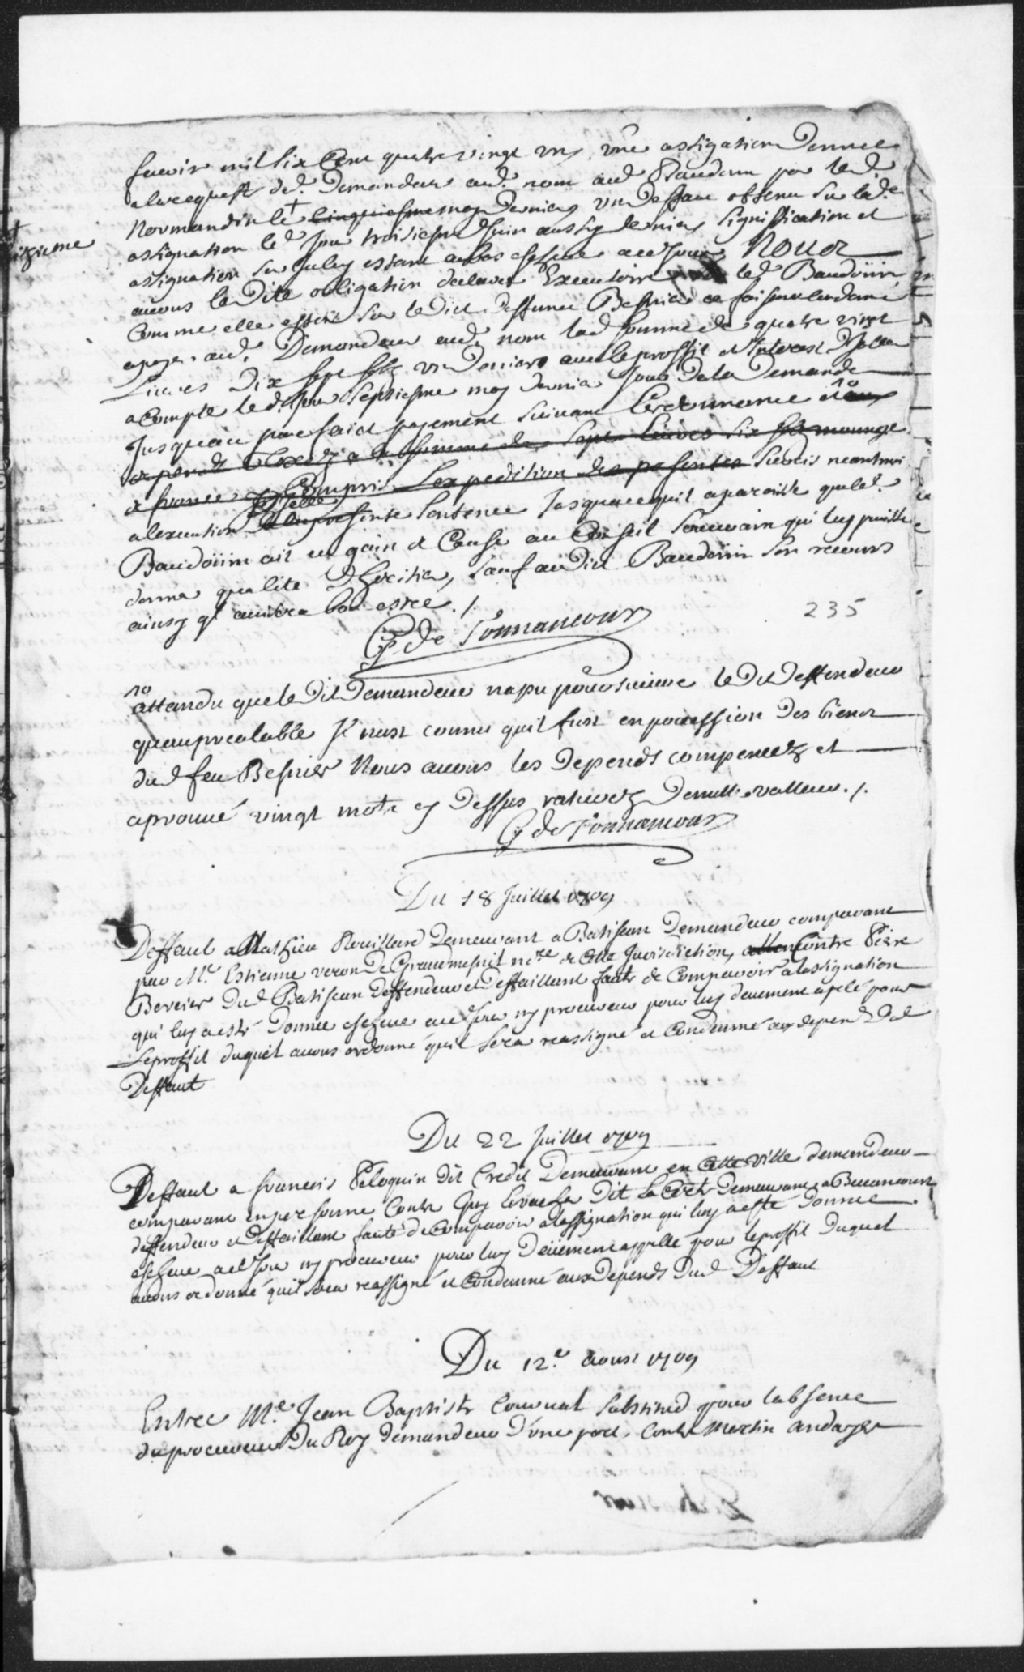 fevrier mil six Cent quatre vingt un, une assignation Donnee
a la requeste dud. Demandeur aud. nom aud Baudouin par led.
Normandin le + cinquiesme may dernier, un deffaut obtenu sur lad.e
sixieme
assignation led Jour troisiesme Juin aussy dernier, signiffication et
assignation sur Iceluy estant au bas escheue a ce Jour, Nous
avons la dite obligation declarée Executoire led Baudoüin
Comme elle estoit sur ledict deffunct Besnier ce faisant condamné
a payer aud. Demandeur aud. nom lad. somme de quatre vingt
Livres Dix sept sols un deniers avec le proffit et Interest D'Icelle
a compter led Jour Septiesme may dernier Jour de la Demande
Jusqu'au parfaict payement suivant L'ordonnance 1o et aux
depends Taxez a la somme de Sept Livres six sols monnoye
de france y Compris L'expedition des presentes Surcis neantmoins
a l'execution de la presente sentence Jusqu'a ce quil aparoisse que led.
Baudoüin ait eu gain de Cause au Conseil Souverain qui luy puisse
donner qualité D'heritier, sauf audict Baudoüin son recours
ainsy qil avisera bon estre ./
235
G de Tonnancour
1o
attandu que le Dit Demandeur na pu poursuivre le Dit deffendeur
qu'auprealable Il n'eust connu quil fust en possession des biens
dud feu Besnier Nous avons les Depends compencez et
aprouvé vingt mots cy Dessus raturez De nulle valleur ./.
G de Tonnancour
Du 18 Juillet 1709
Deffaut a Mathieu Rouillard Demeurant a Batiscan Demandeur comparant
par Me. Estienne veron De Grandmesnil nore de Cette Jurisdiction, allencontre Pierre
Borvier Dud Batiscan Deffendeur et Deffaillant faute de Comparoir a lassignation
qui luy a esté Donnée escheue a ce Jour ny procureur pour luy deuement apelé pour
Le proffit duquel avons ordonné quil sera reassigné et Condamné aux depends dud
Deffaut
Du 22 Juillet 1709
Deffaut a francois Peloquin dit Credit Demeurant en Cette ville demandeur
comparant en personne Contre Guy Dit Demeurant a Becancourt
deffendeur et deffaillant faute de Comparoir a lassignation qui luy a esté Donnée
escheue a ce Jour ny procureur pour luy Deüement appellé pour le proffit duquel
avons ordonné quil sera reassigné et Condamné aux Depends Dud Deffaut
Du 12.e aoust 1709
Entre Me. Jean Baptiste Courval substitud pour labsence
du procureur Du Roy demandeur d'une part, Contre Martin